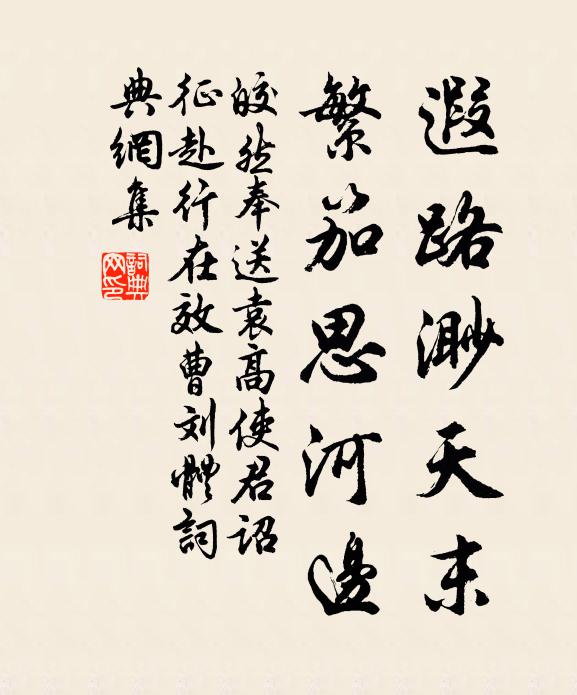 遐路渺天末
繁笳思河邊
皎然奉送袁高使君詔
征赴行在效曹刘體詞
典網集
詞典网印